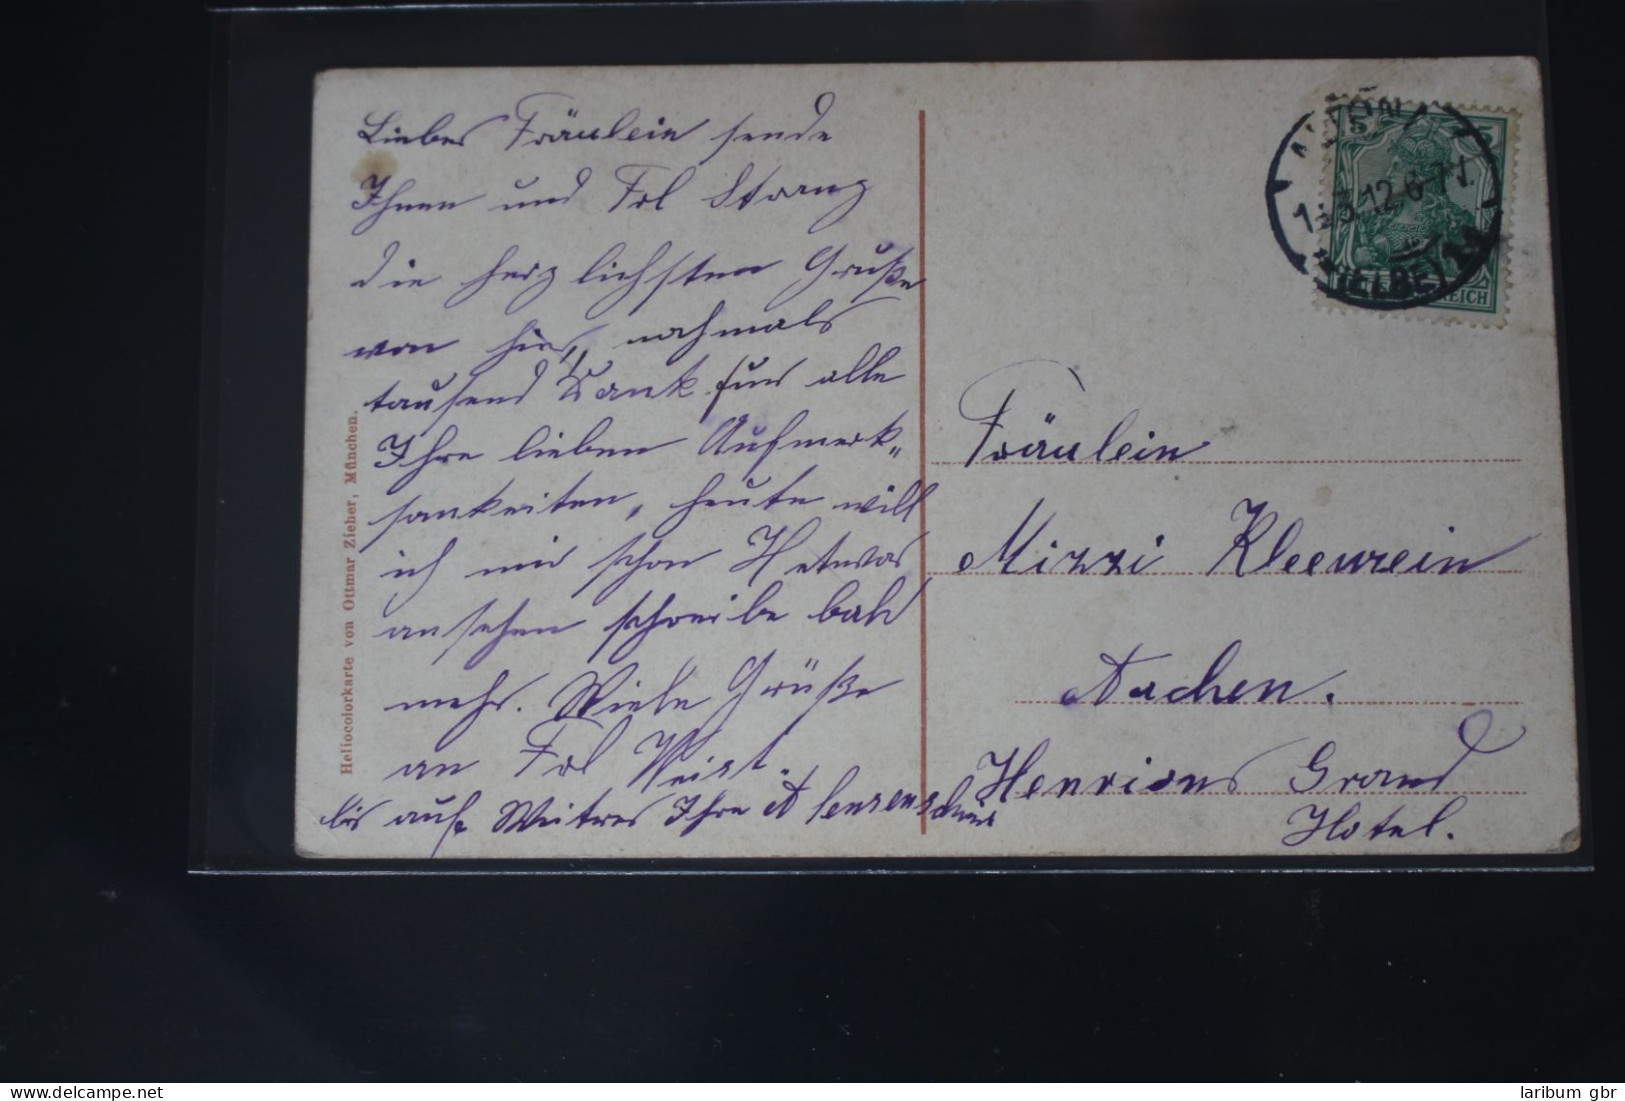 Liebes Fräulein sende
Ihnen und Frl Strang
die herzlichsten Grüße
von hier, nochmals
tausend Dank für alle
Ihre lieben Aufmerk„
samkeiten, heute will
ich mir schon H etwas
ansehen schreibe bald
mehr. Viele Grüße
an Frl
bis auf Weitres Ihre A
Heliocolorkarte von Ottmar Zieher, München.
5 5
1 .3.12.6-7 V.
(ELBE)
REICH
Fräulein
Mizzi Kleewein
Aachen.
Henrions Grand
Hotel.
www.delcampe.net
laribum gbr